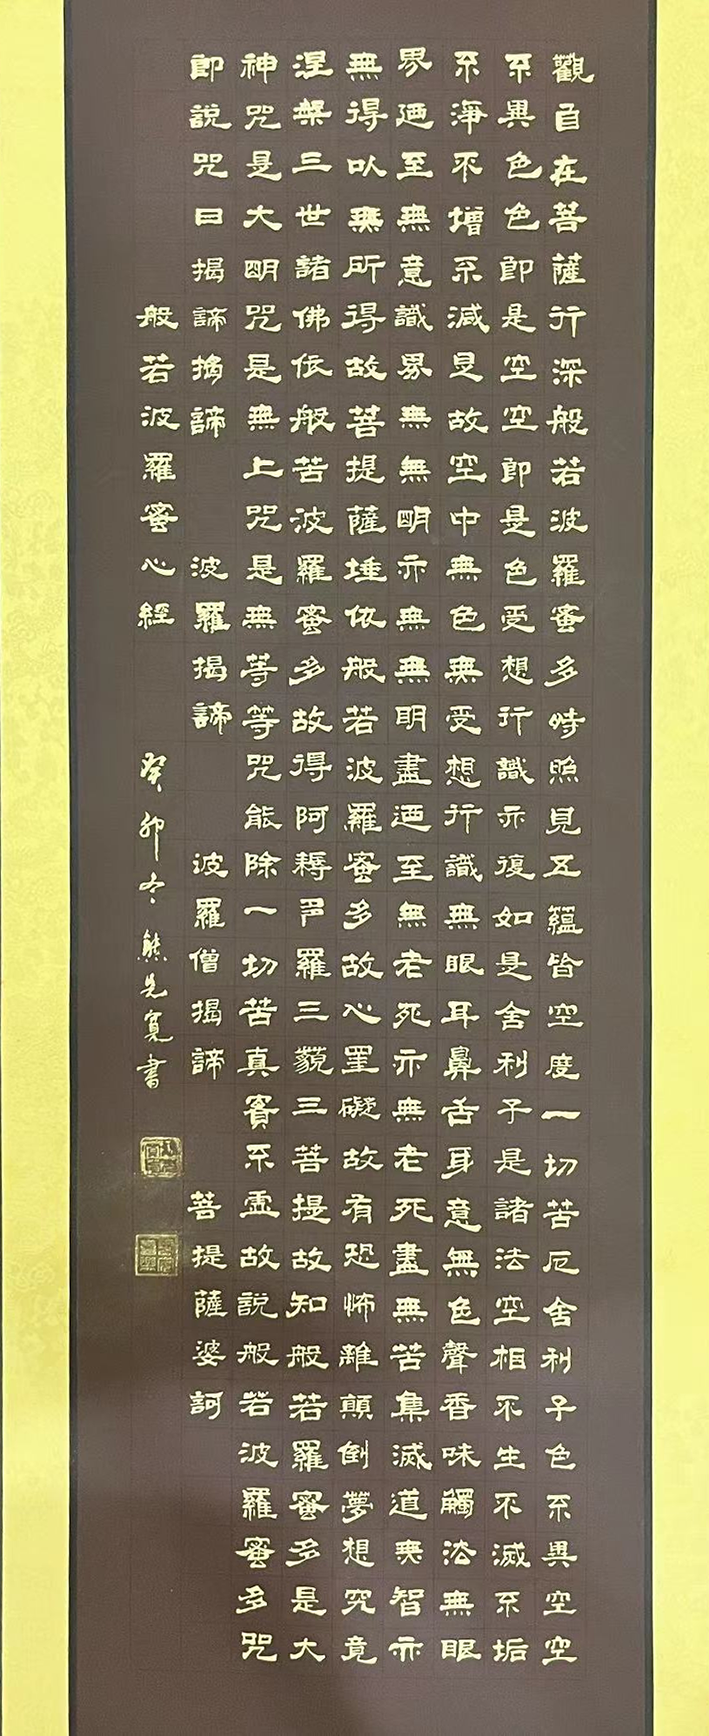 觀自在菩薩行深般若波羅蜜多時照見五蘊皆空度一切苦厄舍利子色不異空空
不異色色即是空空即是色受想行識亦復如是舍利子是諸法空相不生不滅不垢
不淨不增不減是故空中無色無受想行識無眼耳鼻舌身意無色聲香味觸法無眼
界廼至無意識界無無明亦無無明盡廼至無老死亦無老死盡無苦集滅道無智亦
無得以無所得故菩提薩埵依般若波羅蜜多故心罣礙故有恐怖離顛倒夢想究竟
涅槃三世諸佛依般若波羅蜜多故得阿耨多羅三藐三菩提故知般若羅蜜多是大
神咒是大明咒是無上咒是無等等咒能除一切苦真實不虛故說般若波羅蜜多咒
即說咒曰揭諦揭諦 波羅揭諦 波羅僧揭諦 菩提薩婆訶
般若波羅蜜心經 癸卯冬熊先寬書